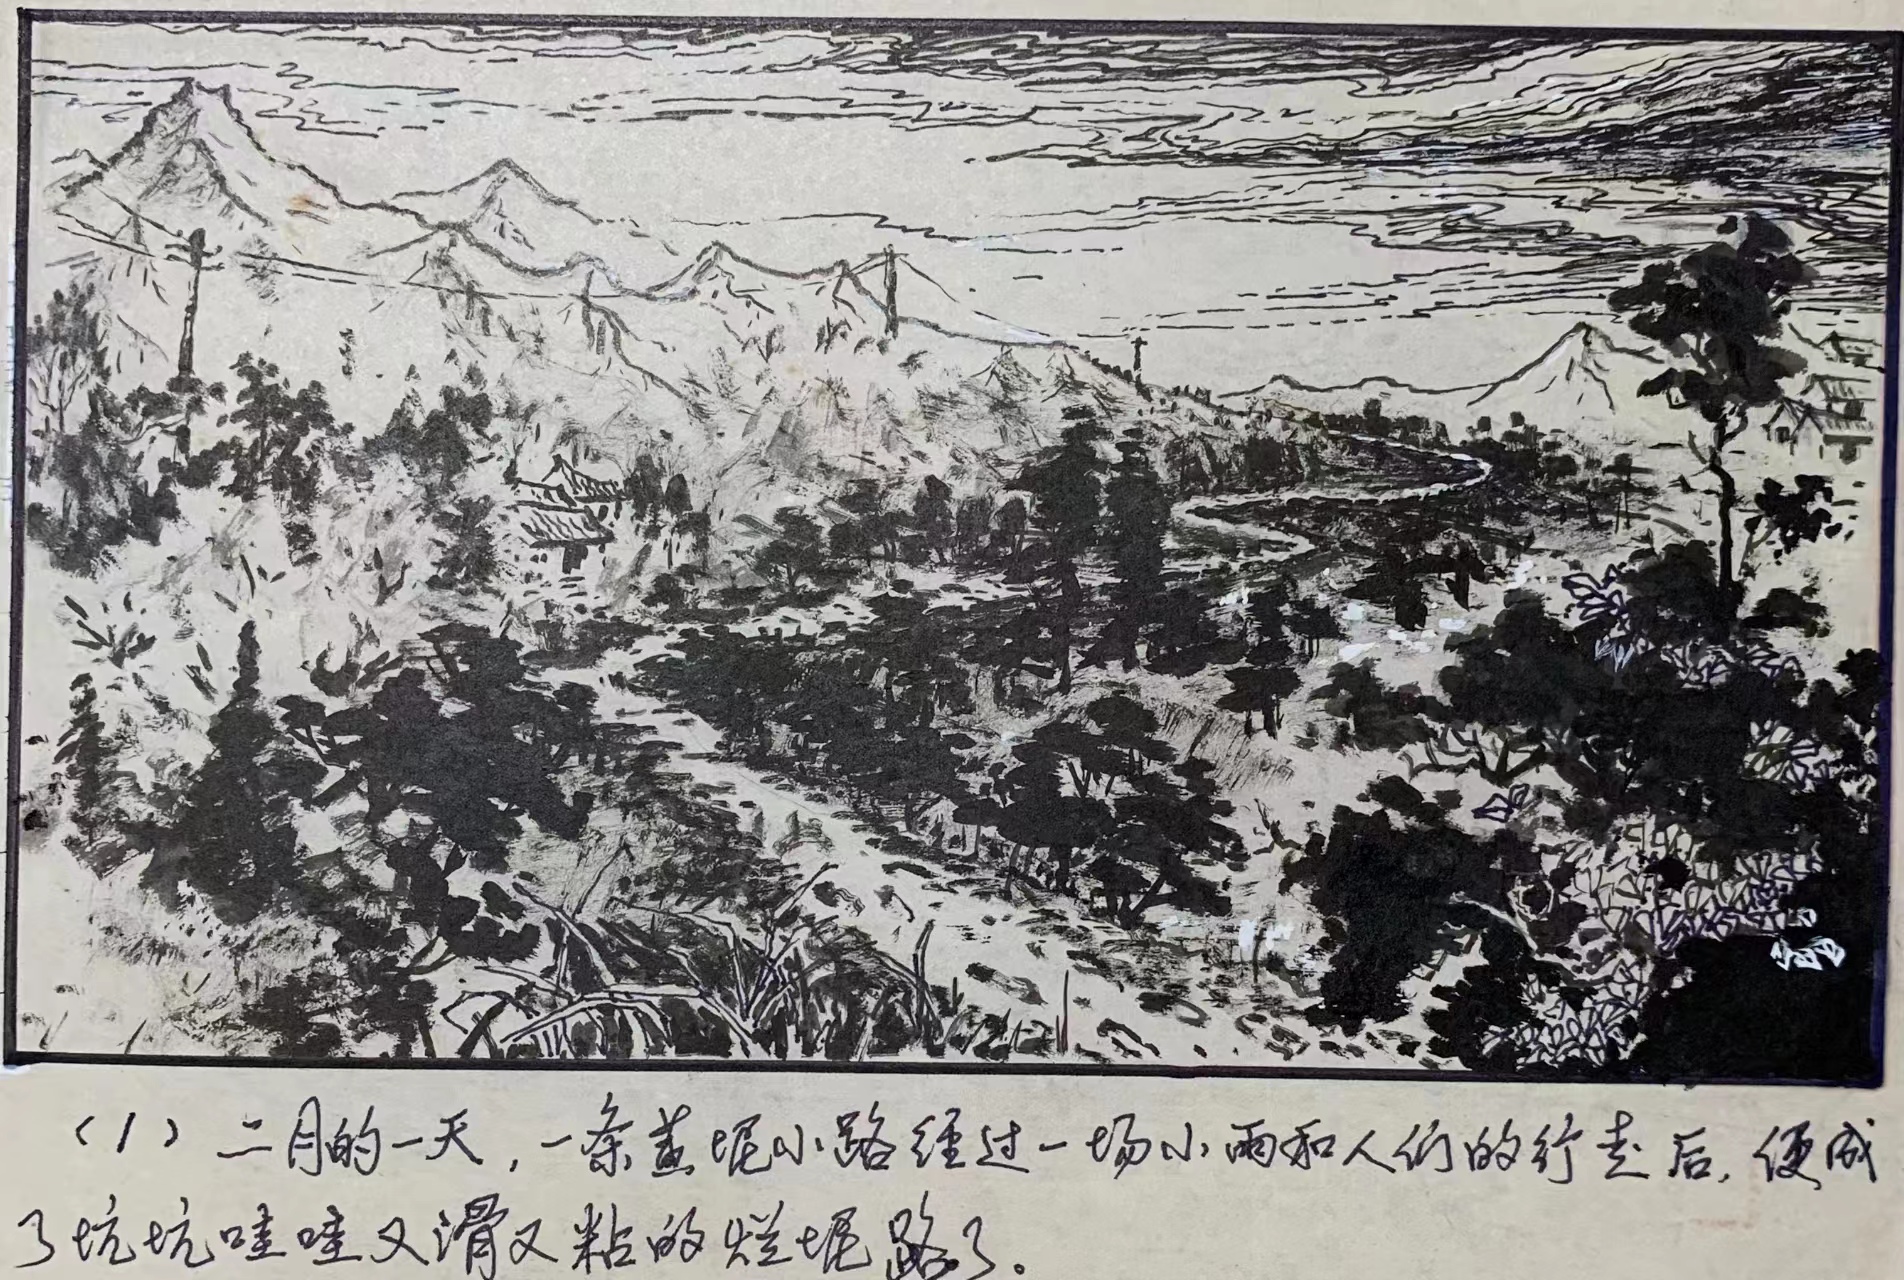 （1）二月的一天，一条黄坭小路经过一场小雨和人们的行走后，便成
了坑坑哇哇又滑又粘的烂坭路了。